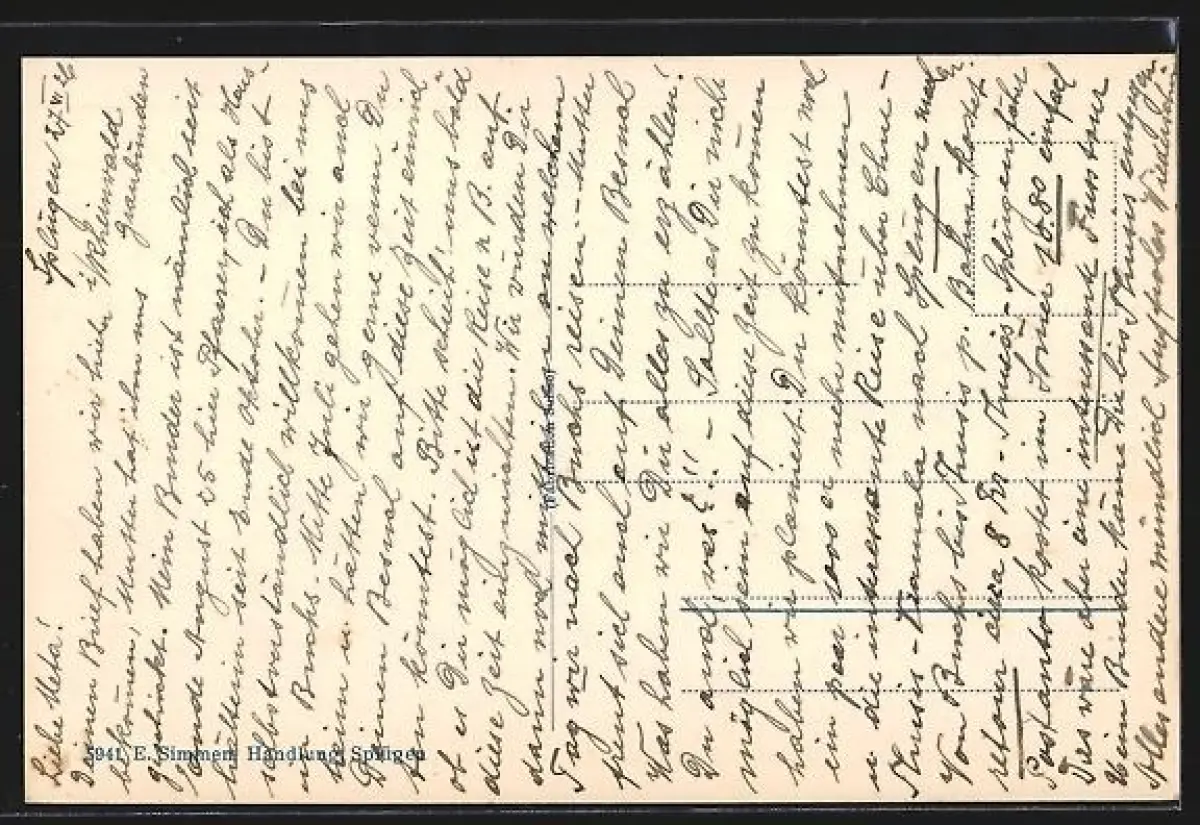 Splügen 27 VI 26
Liebe Meta!
Deinen Brief haben wir hier i/Rheinwald
bekommen, Mutter hat ihn uns Graubünden
geschickt. Mein Bruder ist nämlich seit
Ende August 25 hier Pfarrer, ich als Haus-
hälterin seit Ende Oktober. - Du bist
selbstverständlich willkommen bei uns
in Buchs. Mitte Juli gehen wir auch
heim u. hätten wir gerne wenn Du
Deinen Besuch auf diese Zeit einrich-
ten könntest. Bitte schreib' uns bald
ob es Dir möglich ist die Reise n. B. auf
diese Zeit einzurichten. Wir würden Dir
dann noch mitteilen an welchem
Tag wir nach Buchs reisen. - Mutter
freut sich auch auf Deinen Besuch
Was haben wir Dir alles zu erzählen!
Du auch, was?!! - Sollte es Dir nicht
möglich sein auf diese Zeit zu kommen
haben wir planiert: Du kommtest noch
ein paar mehr mitnehmen
u die interessante Reise über Chur -
Thusis - Viamala nach Splügen machen.
Von Buchs bis Thusis p. Bahn kostet
retour circa 8 Fr - Thusis - Splügen fähr
Postauto kostet im Sommer 16.80 einfach
Dies wäre aber eine interessante Fusstour
Mein Bruder käme Dir bis Thusis entgegen
Alles andere mündlich Auf frohes Wiedersehn
5941 E. Simmen, Handlung, Splügen